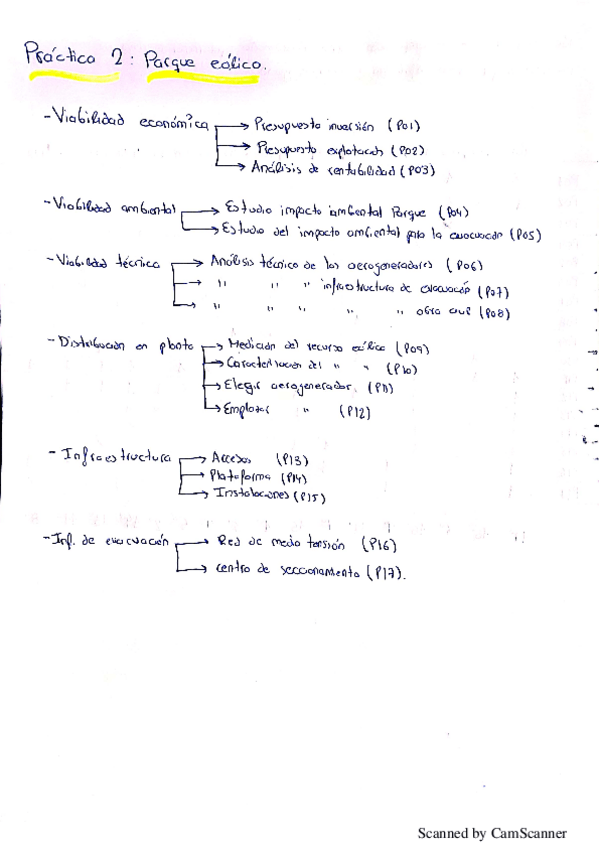 Práctica 2: Parque eólico.
- Viabilidad económica → Presupuesto inversión (P01)
→ Presupuesto explotación (P02)
→ Análisis de rentabilidad (P03)
- Viabilidad ambiental → Estudio impacto ambiental Parque (P04)
→ Estudio del impacto ambiental para la evacuación (P05)
- Viabilidad técnica → Análisis técnico de los aerogeneradores (P06)
→ " " " infraestructura de evacuación (P07)
→ " " " " " obra civil (P08)
- Distribución en planta → Medición del recurso eólico (P09)
→ Caracterización del " " (P10)
→ Elegir aerogenerador. (P11)
→ Emplazar " (P12)
- Infraestructura → Accesos (P13)
→ Plataforma (P14)
→ Instalaciones (P15)
- Inf. de evacuación → Red de media tensión (P16)
→ centro de seccionamiento (P17).
Scanned by CamScanner